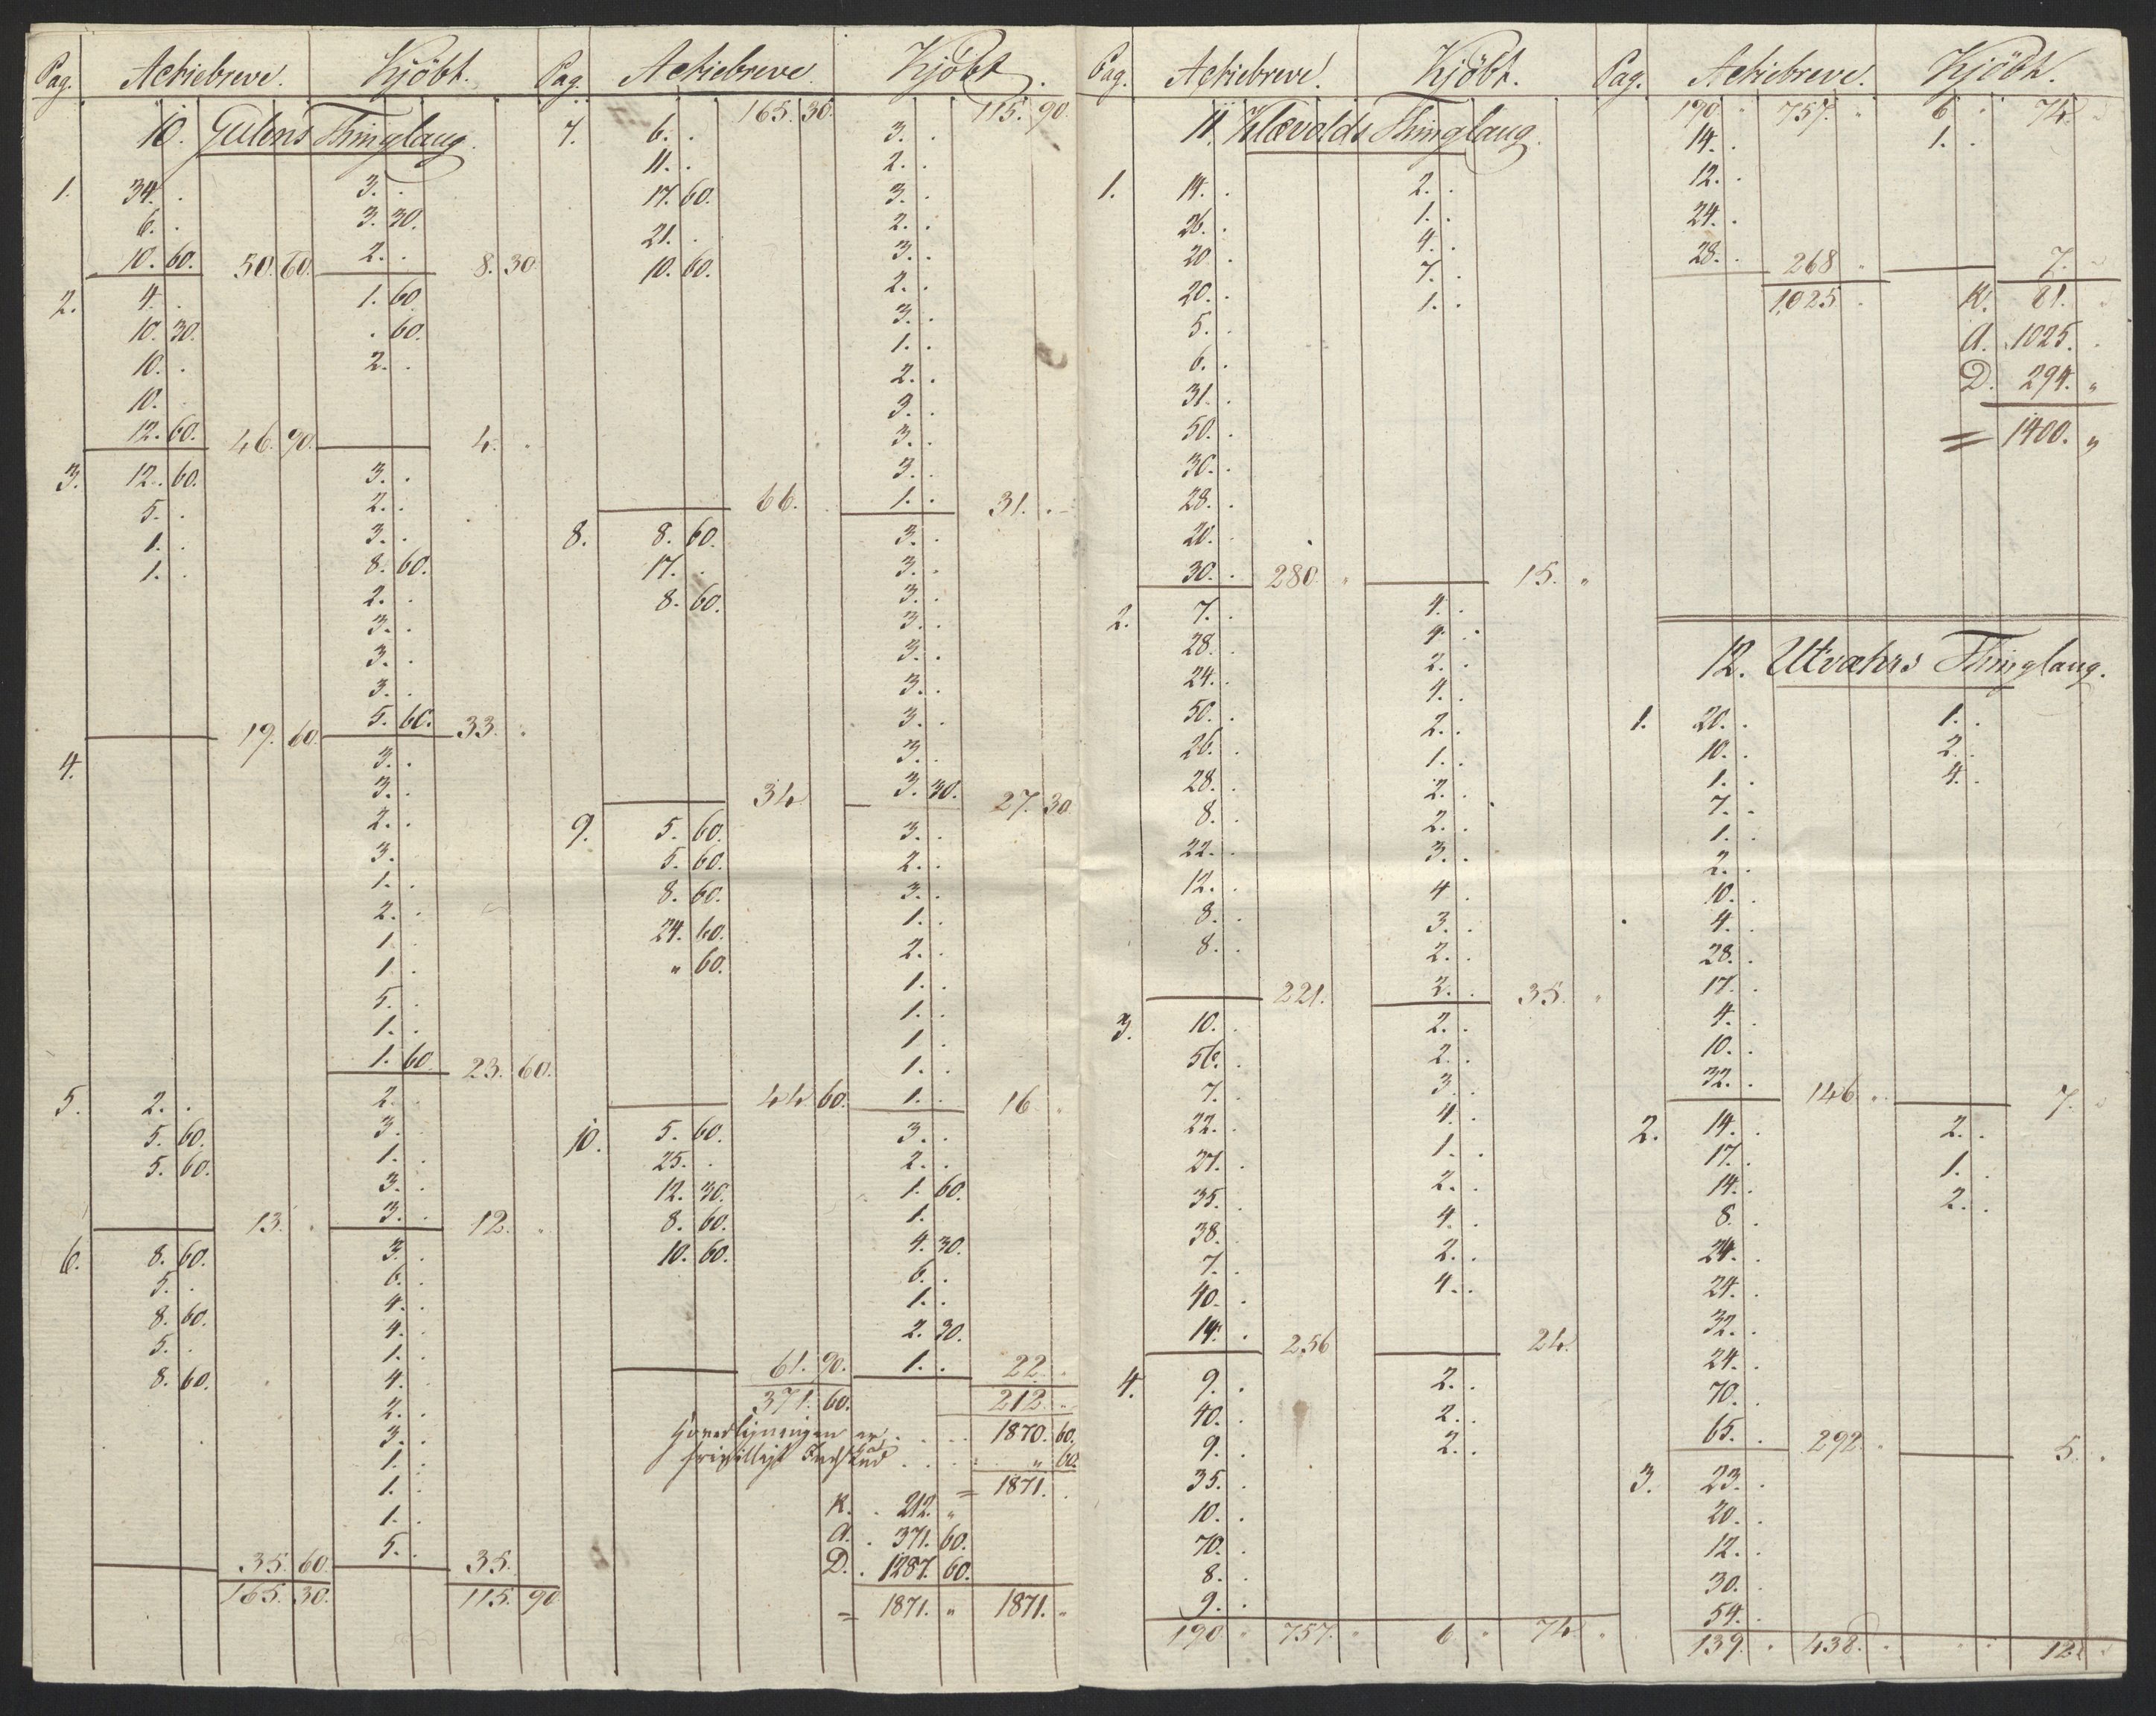 Pag. Actiebreve. Kjöbt.
10. Gulens Thinglaug.
1. 34. . 3. .
6. . 3. 30.
10. 60. 50. 60. 2. . 8. 30
2. 4. . 1. 60
10. 30. . 60.
10. . 2. .
10. .
12. 60. 46. 90. 4. .
3. 12. 60. 3. .
5. . 2. .
1. . 3. .
1. . 8. 60.
2. .
3. .
3. .
3. .
19. 60. 5. 60. 33. .
4. 3. .
3. .
2. .
3. .
1. .
2. .
1. .
1. .
5. .
1. .
1. 60 23. 60.
5. 2. . 2. .
5. 60. 3. .
5. 60. 1. .
3. .
13. . 3. . 12. .
6. 8. 60. 3. .
5. . 6. .
8. 60. 4. .
5. . 4. .
8. 60. 1. .
4. .
2. .
3. .
1. .
1. .
1. .
5. .
35. 60. 35.
165. 30. 115. 90
Pag. Actiebreve. Kjöbt.
165. 30. 115. 90
7. 6. . 3. .
11. . 2. .
17. 60. 3. .
21. . 2. .
10. 60. 3. .
2. .
3. .
1. .
2. .
3. .
3. .
3. .
66. 1. . 31. .
8. 8. 60. 3. .
17. . 3. .
8. 60. 3. .
3. .
3. .
3. .
3. .
3. .
34 3. 30. 27. 30
9. 5. 60. 3. .
5. 60. 2. .
8. 60. 3. .
24. 60. 1. .
" 60. 2. .
1. .
1. .
1. .
1. .
44 60. 1. . 16 .
10. 5. 60. 3. .
25. . 2. .
12. 30. 1. 60.
8. 60. 1. .
10. 60. 4. 30.
6. .
1. .
2. 30.
61. 90. 1. . 22. .
371. 60. 212. "
1870. 60.
frivilligt " 60.
= 1871. .
K. . 212. "
A. . 371. 60.
D. . 1287. 60.
= 1871. " 1871. "
Pag. Actiebreve. Kjöbt.
11. Klævolds Thinglaug.
1. 14. . 2. .
26. . 1. .
20 . 4. .
20. . 7. .
5. . 1. .
6. .
31. .
50. .
30. .
28. .
20. .
30. . 280. " 15. "
2. 7. . 4. .
28. . 4. .
24. . 2. .
50. . 4. .
26. . 2. .
28. . 1. .
8. . 2. .
22. . 2. .
12. . 3. .
8. . 4. .
8. . 3. .
2. .
221. 2. . 35. "
3. 10. . 2. .
56. . 2. .
7. . 3. .
22. . 4. .
27. . 1. .
35. . 2. .
38. . 4. .
7. . 2. .
40. . 4. .
14. . 256 24.
4. 9. . 2. .
40. . 2. .
9. . 2. .
35. .
10. .
70. .
8. .
9. .
190 " 757. " 6 " 74. "
Pag. Actiebreve. Kjöbt.
190. " 757. " 6 " 74. "
14. . 1. .
12. .
24. .
28. . 268 " 7. "
1025 . K. 81. "
A. 1025. .
D. 294. "
= 1400. "
12. Utvæhrs Thinglaug.
1. 20. . 1. .
10. . 2. .
1. . 4. .
7. .
1. .
2. .
10. .
4. .
28. .
17. .
4. .
10. .
32. . 146 . 7. "
2. 14. . 2. .
17. . 1. .
14. . 2. .
8. .
24. .
24. .
32. .
24. .
70. .
65. . 292 . 5. .
3. 23. .
20. .
12. .
30. .
54. .
139. " 438. " 12. "